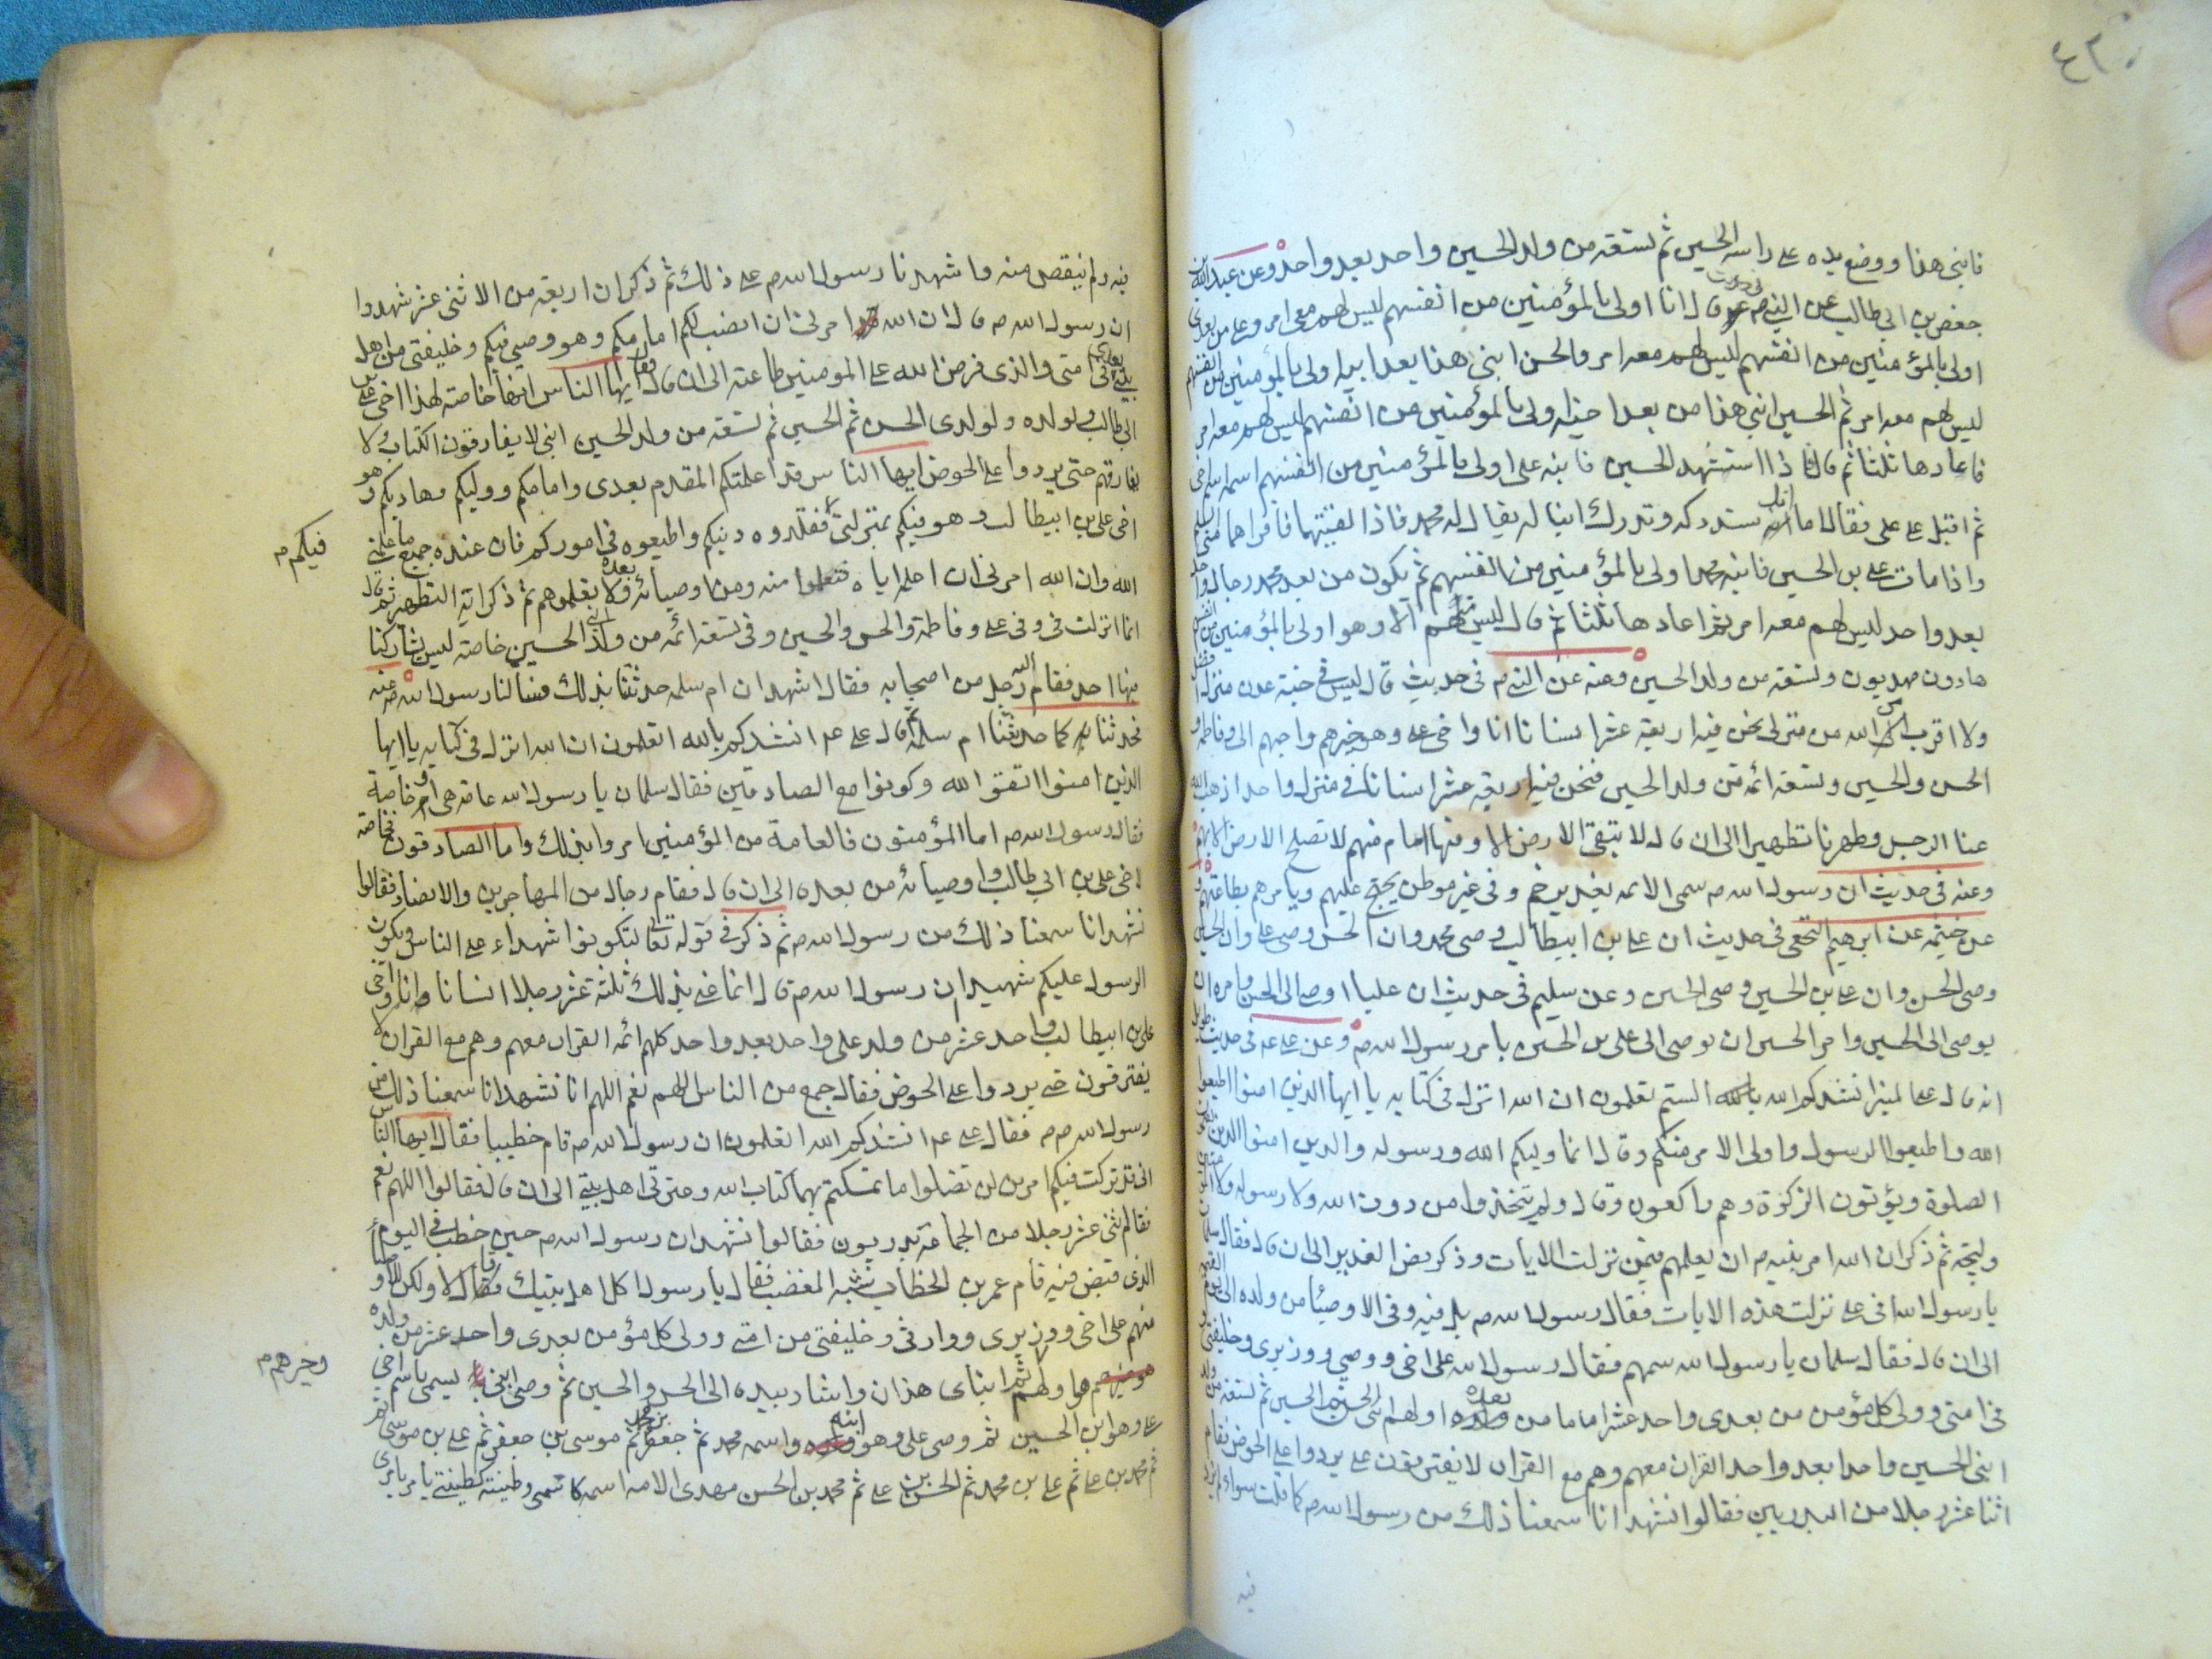 ٤٣٠
فابنى هذا ووضع يده على راس الحسين ثم تسعة من ولد الحسين واحد بعد واحد وعن عبد الله بن
جعفر بن ابى طالب عن النبى ص قال انا اولى بالمؤمنين من انفسهم ليس لهم معى امر وعلى من بعدى
اولى بالمؤمنين من انفسهم ليس لهم معه امر والحسن ابنى هذا بعد ابيه اولى بالمؤمنين من انفسهم
ليس لهم معه امر ثم الحسين ابنى هذا من بعد اخيه اولى بالمؤمنين من انفسهم ليس لهم معه امر
فاعادها ثلثا ثم قال فاذا استشهد الحسين فابنه على اولى بالمؤمنين من انفسهم اسمه اسم اخى
ثم اقبل على على فقال اما انك ستدركه وتدرك ابنا له يقال له محمد فاذا لقيتهما فاقراهما منى السلم
واذا مات على بن الحسين فابنه محمد اولى بالمؤمنين من انفسهم ثم يكون من بعد محمد رجال واحد
بعد واحد ليس لهم معه امر ثم اعادها ثلثا ثم قال ليس منهم الا وهو اولى بالمؤمنين من انفسهم
هادون مهديون وتسعة من ولد الحسين وعنه عن النبى ص فى حديث قال ليس فى جنة عدن منزل افضل
ولا اقرب الى الله من منزلى نحن فيه اربعة عشر انسانا انا واخى على وهو خيرهم واحبهم الى وفاطمة و
الحسن والحسين وتسعة ائمة من ولد الحسين فنحن فيه اربعة عشر انسانا فى منزل واحد اذهب الله
عنا الرجس وطهرنا تطهيرا الى ان قال لا تبقى الارض الا وفيها امام منهم لا تصلح الارض الا بهم
وعنه فى حديث ان رسول الله ص سمى الائمه بغدير خم وفى غير موطن يحتج عليهم ويامرهم بطاعتهم و
عن خيثمه عن ابرهيم النخعى فى حديث ان على بن ابيطالب وصى محمد وان الحسن وصى على وان الحسين
وصى الحسن وان على بن الحسين وصى الحسين وعن سليم فى حديث ان عليا اوصى الى الحسن وامره ان
يوصى الى الحسين وامر الحسين ان يوصى الى على بن الحسين بامر رسول الله ص وعن على ع فى حديث طويل
انه قال على المنبر انشدكم الله بالله الستم تعلمون ان الله انزل فى كتابه يا ايها الذين امنوا اطيعوا
الله واطيعوا الرسول واولى الامر منكم وقال انما وليكم الله ورسوله والذين امنوا الذين يقيمون
الصلوة ويؤتون الزكوة وهم راكعون وقال ولم يتخذوا من دون الله ولا رسوله ولا المؤمنين
وليجة ثم ذكر ان الله امر نبيه ص ان يعلمهم فيمن نزلت الايات وذكر نص الغدير الى ان قال فقال سلمان
يا رسول الله افى على نزلت هذه الايات فقال رسول الله ص بل فيه وفى الاوصيا من ولده الى يوم القيمة
الى ان قال فقال سلمان يا رسول الله سمهم فقال رسول الله على اخى ووصيى ووزيرى وخليفتى
فى امتى وولى كل مؤمن من بعدى واحد عشر اماما من ولده اولهم ابنى الحسن ثم الحسين ثم تسعة من ولد
ابنى الحسين واحدا بعد واحد القران معهم وهم مع القران لا يفترقون حتى يردوا على الحوض فقام
اثنا عشر رجلا من البدريين فقالوا نشهد انا سمعنا ذلك من رسول الله ص كما قلت سواء لم تزد
فيه
فيه ولم ينقص منه ما شهدنا رسول الله ص على ذلك ثم ذكر ان اربعة من الاثنى عشر شهدوا
ان رسول الله ص قال ان الله امرنى ان انصب لكم امامكم وهو وصيى فيكم وخليفتى من اهل
بيتى فى امتى والذى فرض الله على المومنين طاعته الى ان قال ايها الناس انها خاصة لهذا اخى على بن
ابى طالب ولولده ولولدى الحسن ثم الحسين ثم تسعة من ولد الحسين ابنى لا يفارقون الكتاب ولا
يفارقهم حتى يردوا على الحوض ايها الناس قد اعلمتكم المقدم بعدى وامامكم ووليكم وهاديكم وهو
اخى على بن ابيطالب وهو فيكم بمنزلتى فقلدوه دينكم واطيعوه فى اموركم فان عنده جميع ما علمنى
فيكم م
الله وان الله امرنى ان اعلمه اياه فتعلموا منه ومن اوصيائه بعده ولا تعلموهم ثم ذكر اية التطهير ثم قال
انما انزلت فى وفى على وفاطمة والحسن والحسين وفى تسعة ائمه من ولد الحسين خاصة ليس يشاركنا
فيها احد فقام اليه رجل من اصحابه فقال اشهد ان ام سلمه حدثتنا بذلك فسالنا رسول الله ص عنه
فحدثنا به كما حدثتنا ام سلمة ثم قال على ع انشدكم بالله اتعلمون ان الله انزل فى كتابه يا ايها
الذين امنوا اتقوا الله وكونوا مع الصادقين فقال سلمان يا رسول الله عامة هى ام خاصة
فقال رسول الله ص اما المؤمنون فالعامة من المؤمنين امروا بذلك واما الصادقون فخاصة
لاخى على بن ابى طالب واوصيائه من بعده الى ان قال فقام رجال من المهاجرين والانصار فقالوا
نشهد انا سمعنا ذلك من رسول الله ص ثم ذكر فى قوله تعالى لتكونوا شهداء على الناس ويكون
الرسول عليكم شهيدا ان رسول الله ص قال انما عنى بذلك ثلثة عشر رجلا انسانا انا واخى
على بن ابيطالب واحد عشر من ولد على واحد بعد واحد كلهم ائمه القران معهم وهم مع القران لا
يفترقون حتى يردوا على الحوض فقال جمع من الناس اللهم نعم اللهم انا نشهد انا سمعنا ذلك من
رسول الله ص فقال على ع انشدكم الله اتعلمون ان رسول الله ص قام خطيبا فقال ايها الناس
انى قد تركت فيكم امرين لن تضلوا ما تمسكتم بهما كتاب الله وعترتى اهل بيتى الى ان قال فقالوا اللهم نعم
فقام اثنى عشر رجلا من الجماعة بدريون فقالوا نشهد ان رسول الله ص حين خطب فى اليوم
الذى قبض فيه قام عمر بن الخطاب شبه المغضب فقال يا رسول الله اكل اهل بيتك فقال لا ولكن اوصيائى
منهم على اخى ووزيرى ووارثى وخليفتى من امتى وولى كل مؤمن بعدى واحد عشر من ولده
هو اولهم وخيرهم م ثم ابناى هذان واشار بيده الى الحسن والحسين ثم وصى ابنى يسمى باسم اخى
على وهو ابن الحسين ثم وصى على وهو ابنه واسمه محمد ثم جعفر بن محمد ثم موسى بن جعفر ثم على بن موسى ثم
محمد بن على ثم على بن محمد ثم الحسن بن على ثم محمد بن الحسن مهدى الامه اسمه كاسمى وطينته كطينتى يامر بامرى